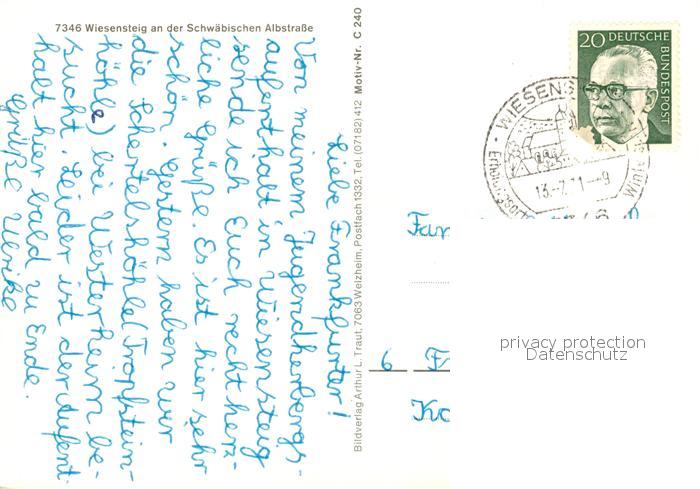 7346 Wiesensteig an der Schwäbischen Albstraße
Liebe Frankfurter!
Von meinem Jugendherbergs-
aufenthalt in Wiesensteig
sende ich Euch recht herz-
liche Grüße. Es ist hier sehr
schön. Gestern haben wir
die Schertelshöhle (Tropfstein-
höhle) bei Westerheim be-
sucht. Leider ist der Aufent-
halt hier bald zu Ende.
Grüße Ulrike
Bildverlag Arthur L. Traut, 7063 Welzheim, Postfach 1332, Tel. (07182) 412 Motiv-Nr. C 240
20 DEUTSCHE BUNDESPOST
13.-7.71--9
Fam
6 Fr
privacy protection
Datenschutz